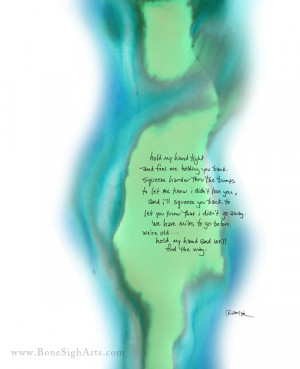 hold my hand tight
and feel me holding you back.
squeeze harder thru the bumps
to let me know i didn't lose you,
and i'll squeeze you back to
let you know that i didn't go away.
we have miles to go before
we're old...
hold my hand and we'll
find the way.
www.BoneSighArts.com